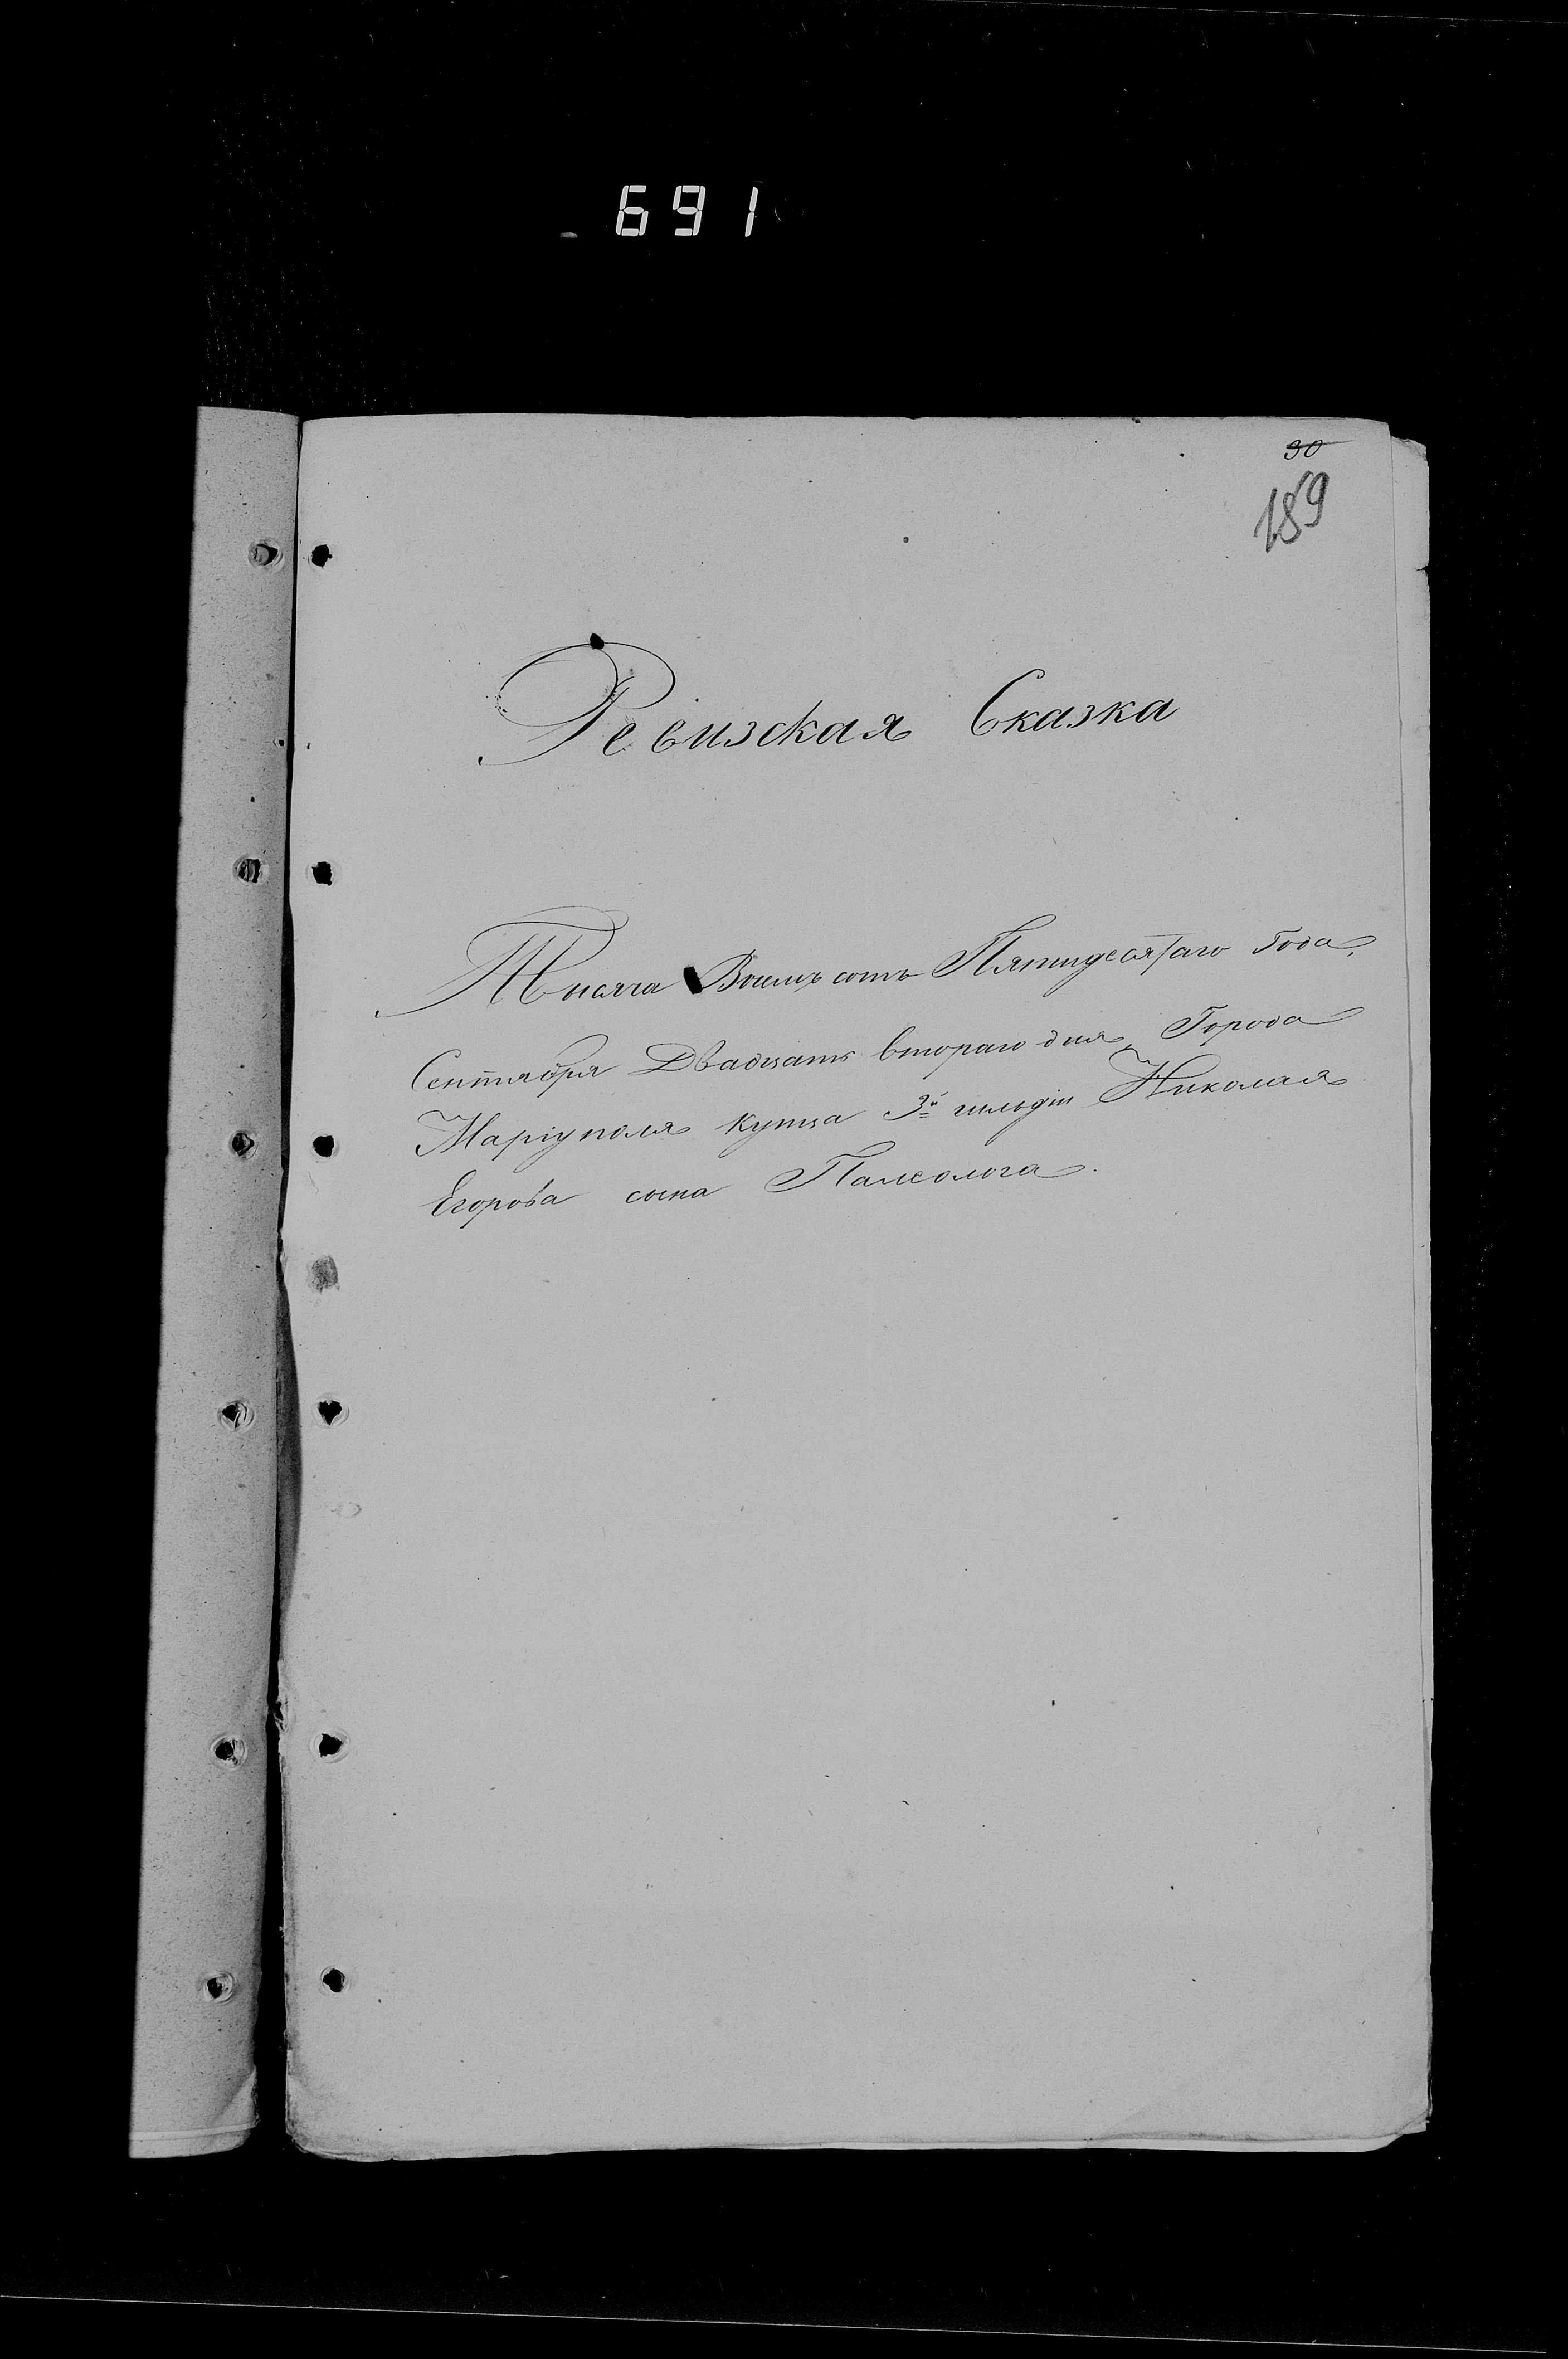 691
30
189
Ревизская Сказка
Тысяча Восемь сотъ Пятидесятаго Года,
Сентября Двадцать втораго дня, Города
Маріуполя купца 3й гильдіи Николая
Егорова сына Палеолога.